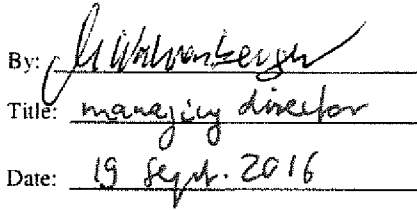 By:
Title: managing director
Date: 19 Sept. 2016